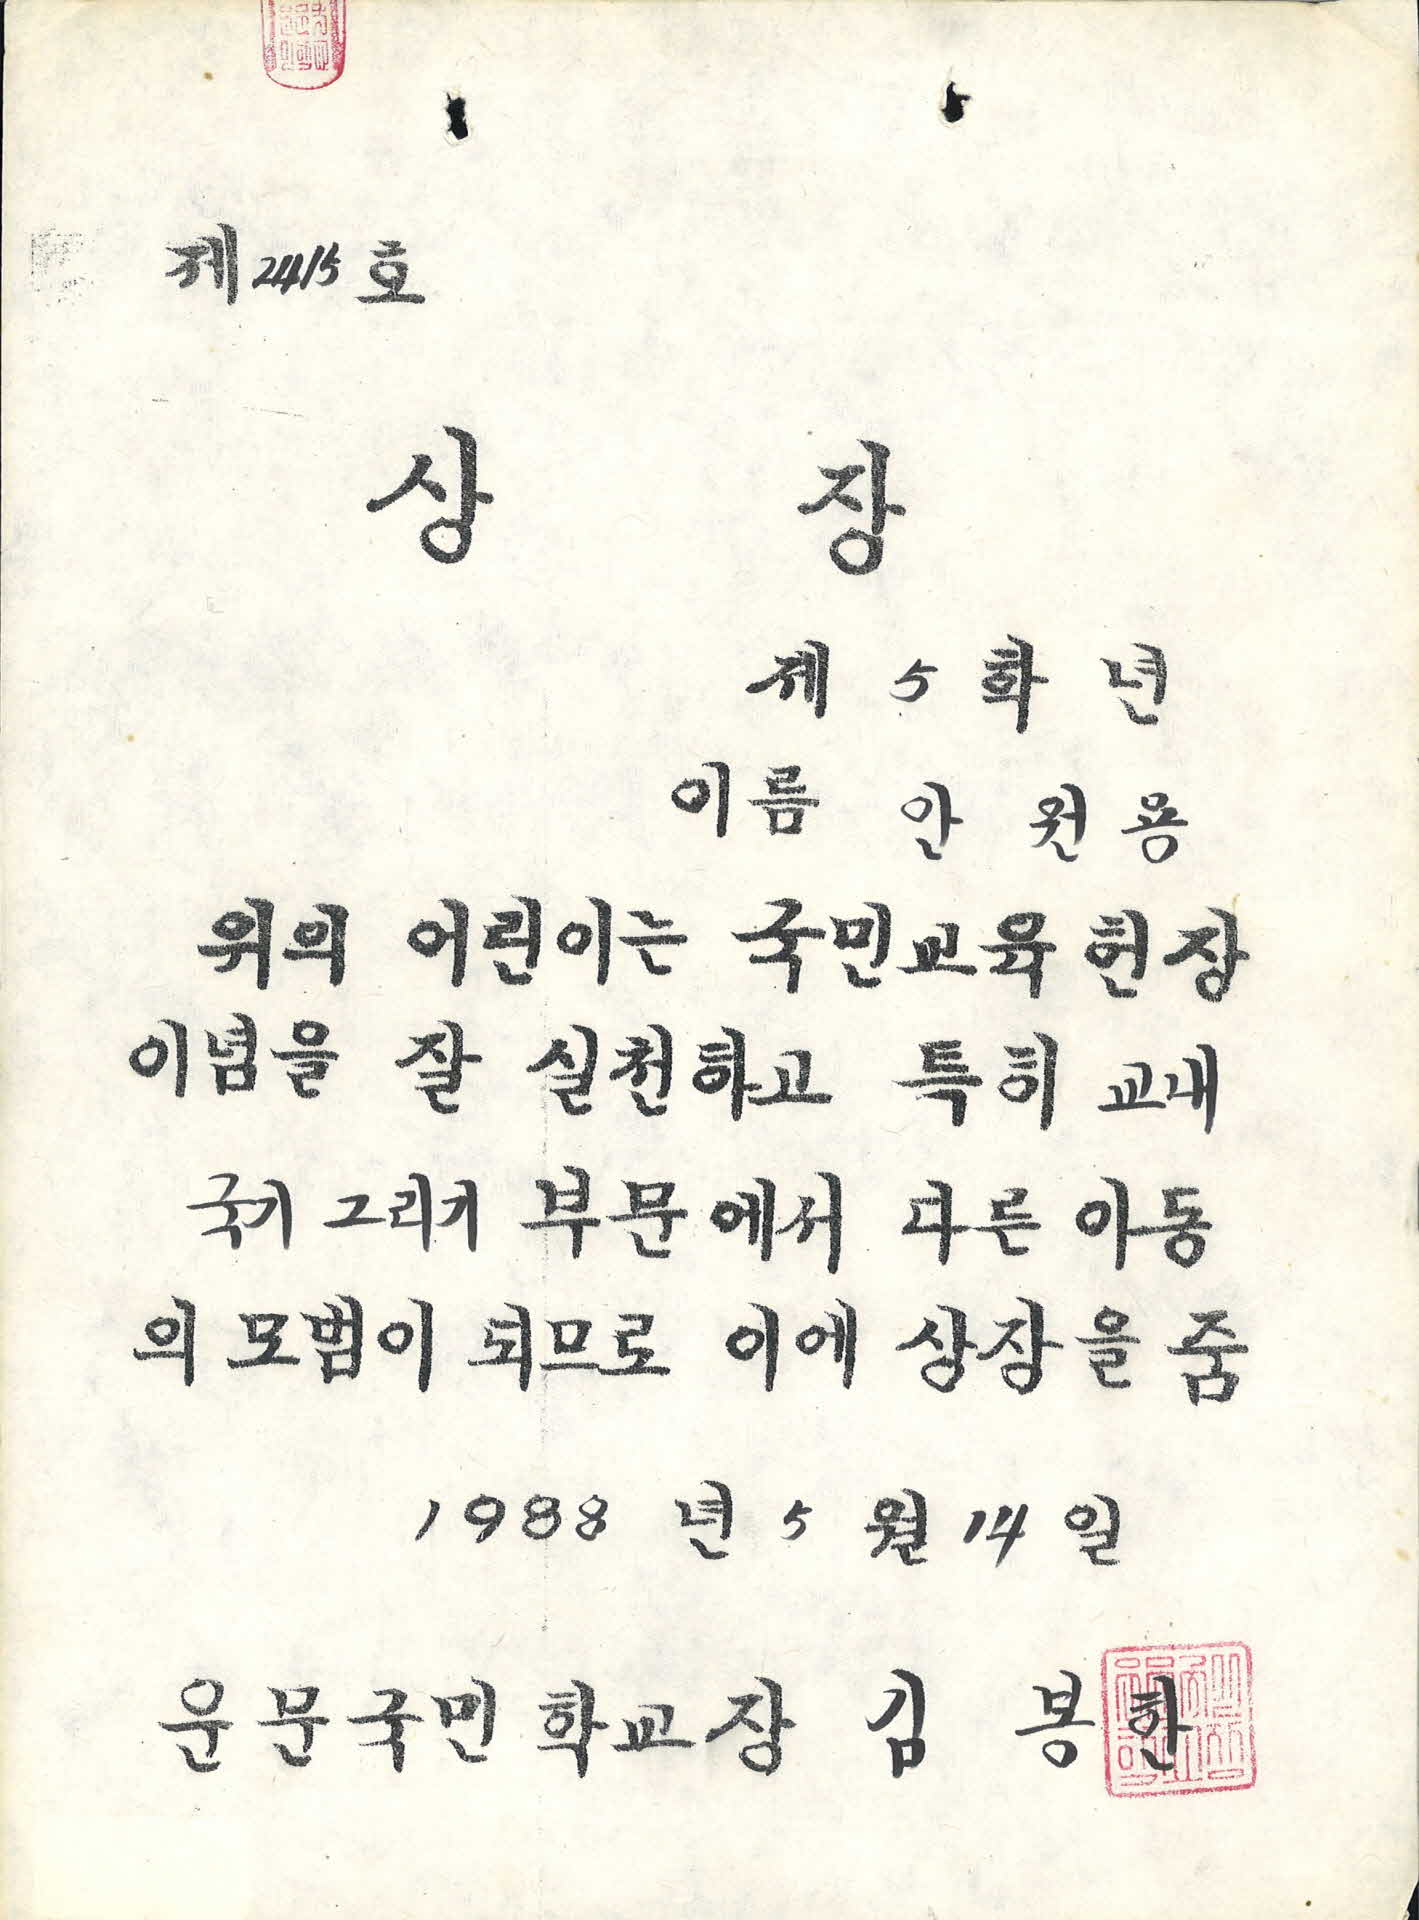 제 2415 호
상 장
제 5 학 년
이름 안 원 용
위의 어린이는 국민교육헌장
이념을 잘 실천하고 특히 교내
국기 그리기 부문에서 다른 아동
의 모범이 되므로 이에 상장을 줌
1988 년 5 월 14 일
운문국민학교장 김 봉 한